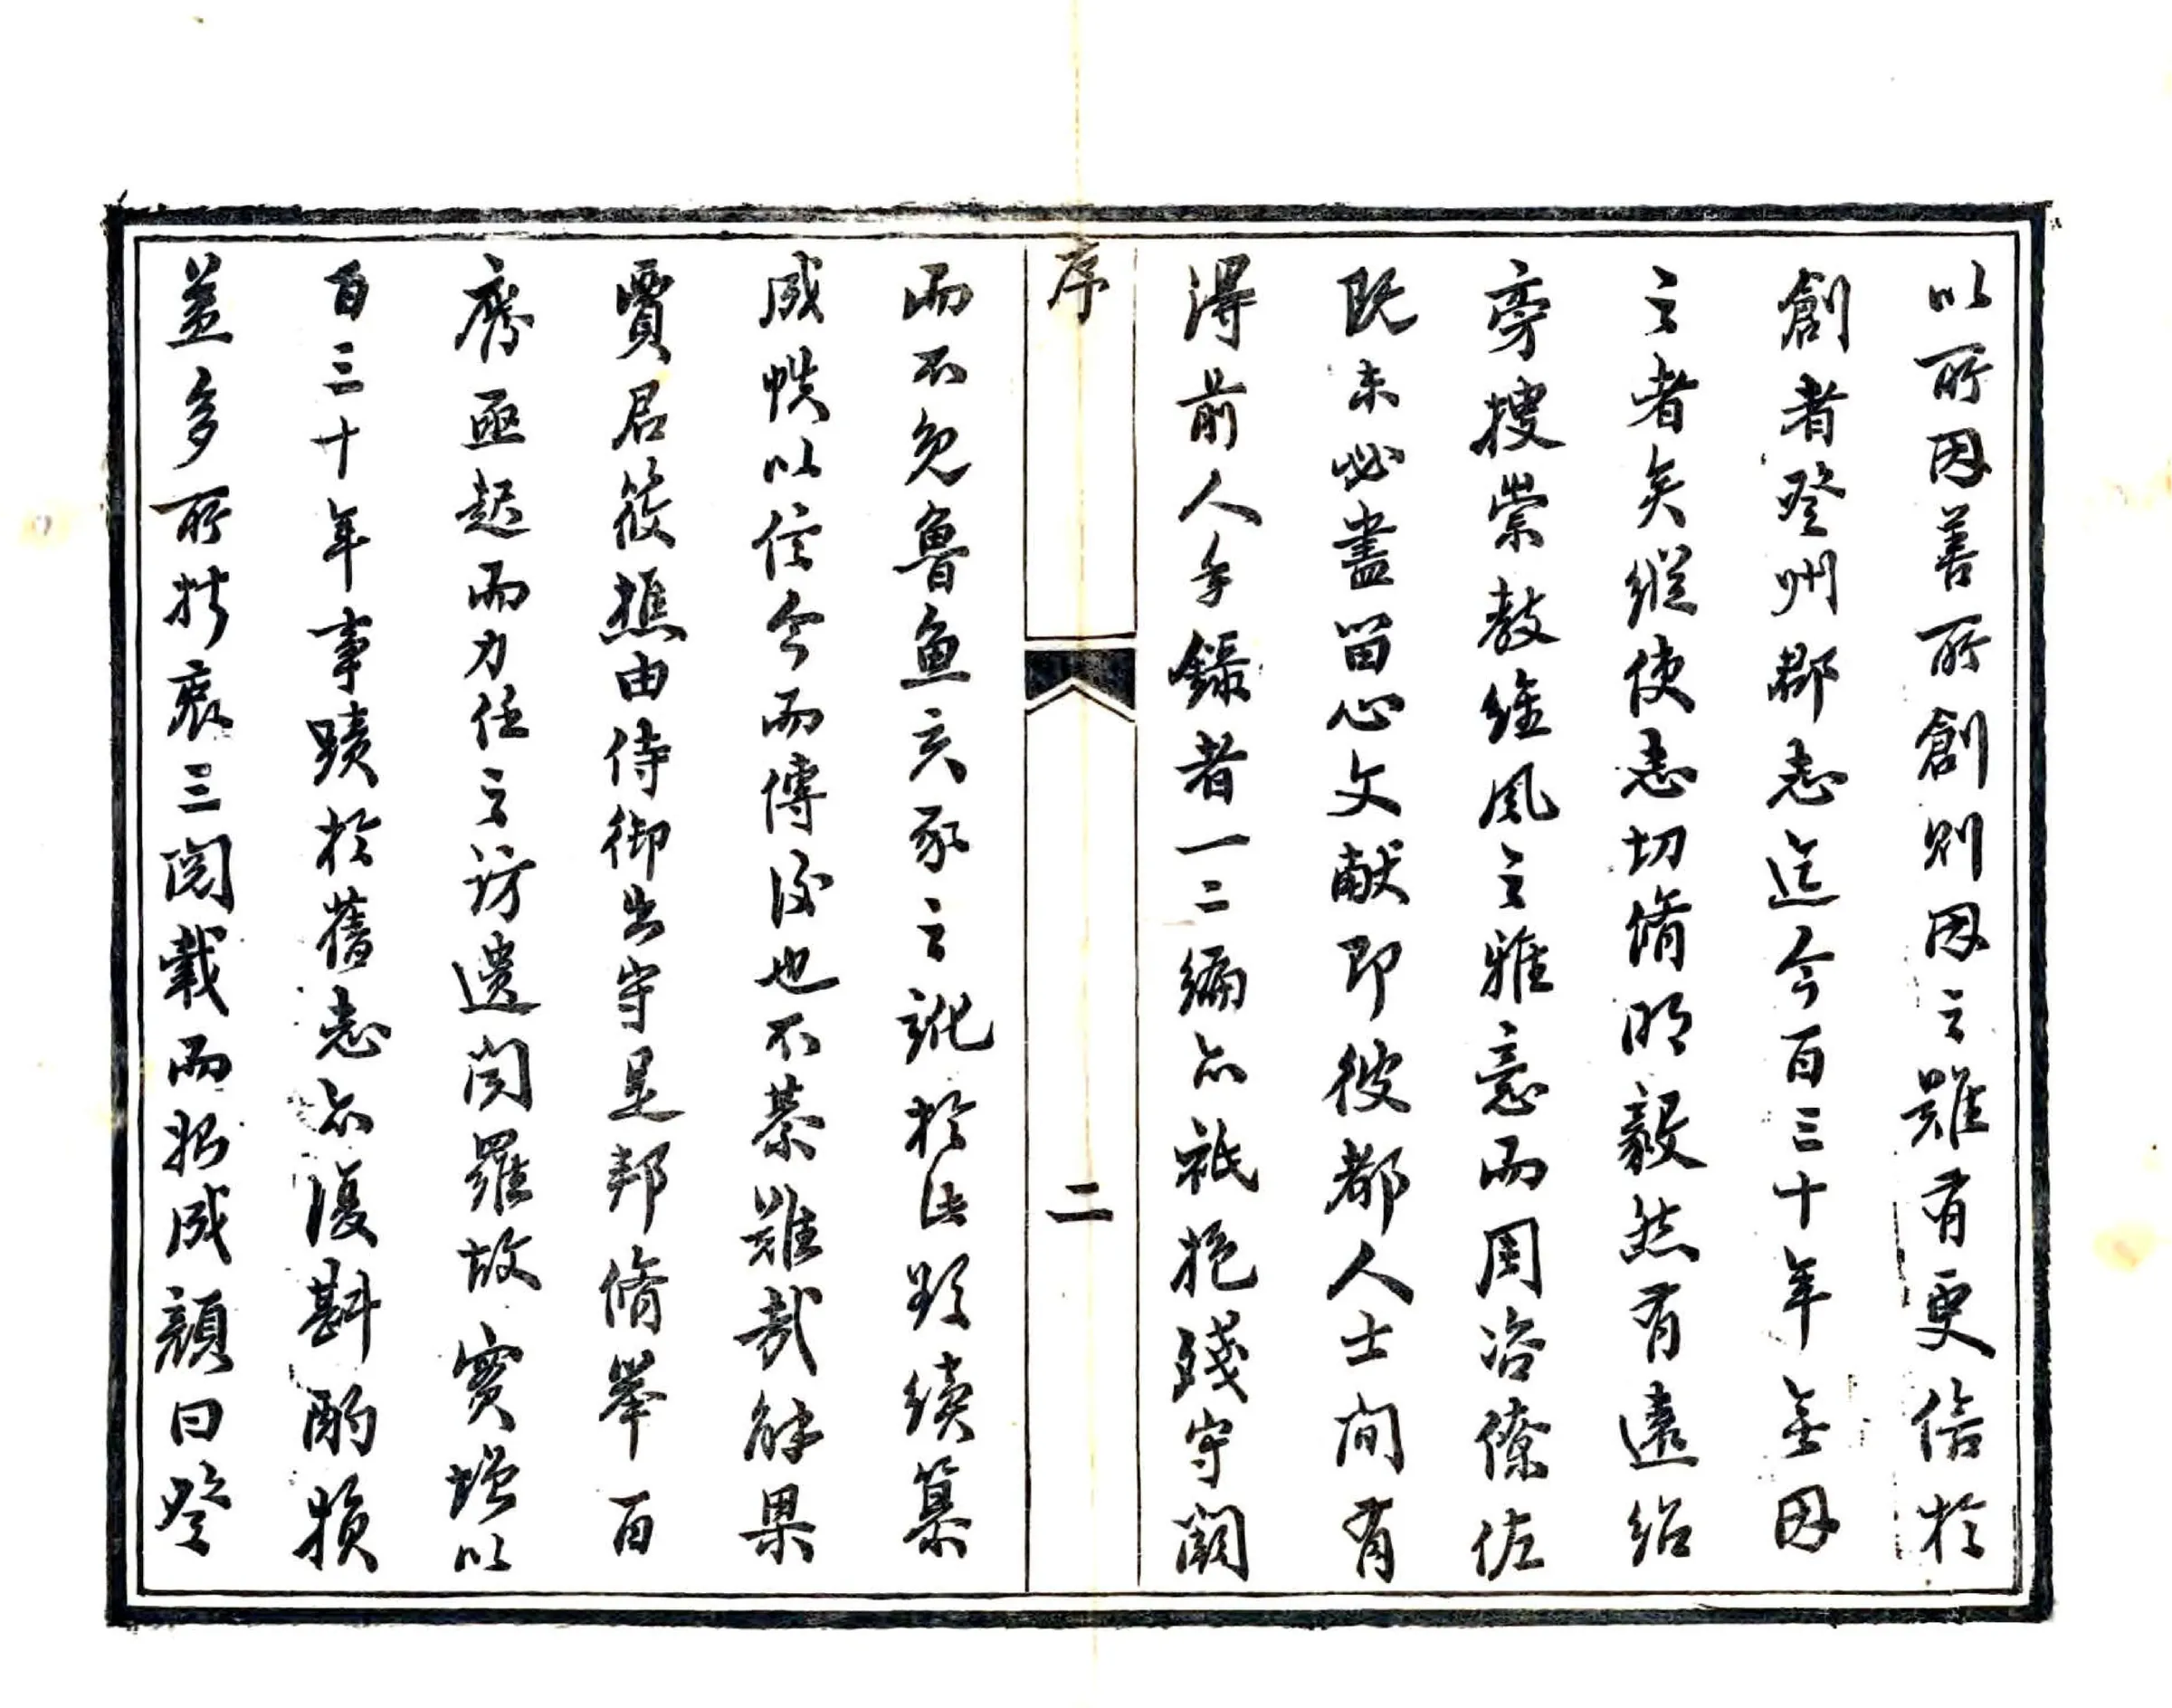 以所因善所創則因之難有更倍於
創者登州郡志迄今百三十年無因
之者矣縱使志切脩明毅然有遠紹
旁搜崇教維風之雅意而周咨僚佐
既未必盡留心文獻即彼都人士間有
得前人手錄者一二編亦祗抱殘守闕
序
二
而不免魯魚亥豕之訛於法欲續纂
成帙以信今而傳後也不綦難哉解果
賈君筱樵由侍御出守是邦脩舉百
廢亟起而力任之訪遺聞羅故實增以
百三十年事蹟於舊志亦復斟酌損
益多所折衷三閱載而始成顏曰登